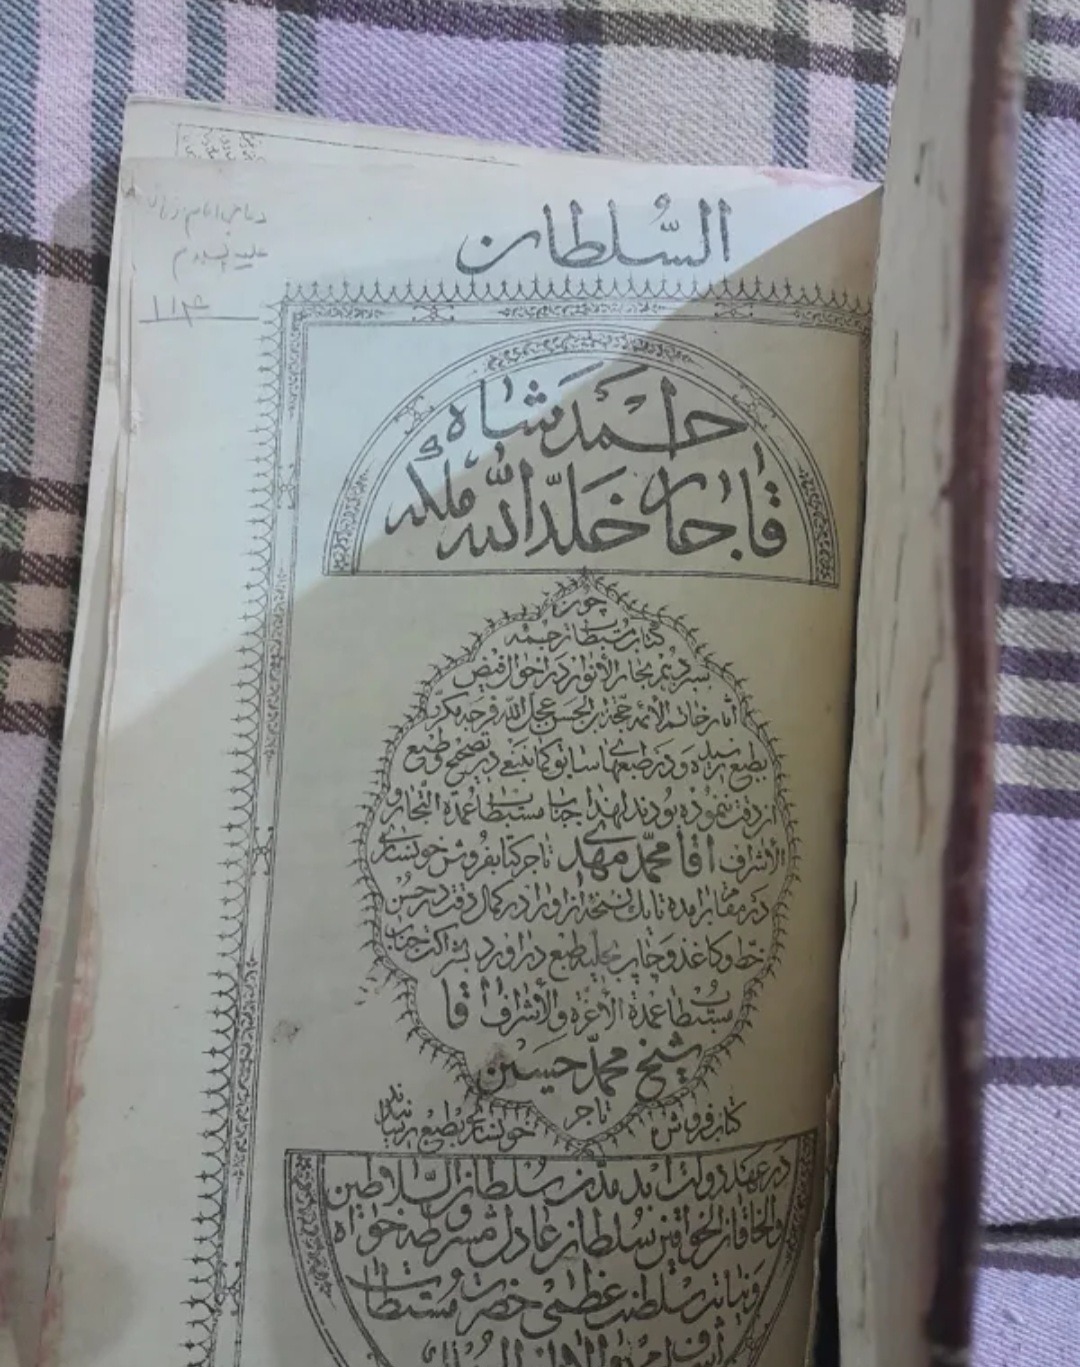 دعاهای امام زمان
علیه السلام
۱۱۴
السّلطان
احمد شاه
قاجار خلّد الله ملکه
چون
کتاب مستطاب ترجمه
سیزدهم بحار الانوار در احوال فیض
آثار خاتم الائمه حجة ابن الحسن عجل الله فرجه مکرر
بطبع رسیده و در طبعهای سابق کما ینبغی در تصحیح و طبع
آن دقت ننموده بودند لهذا جناب مستطاب عمدة التجار و
الاشراف آقا محمّد مهدی تاجر کتابفروش خونساری
در مقام آمده تا یک نسخه از او را در کمال دقت در حسن
خط و کاغذ و چاپ بحلیه طبع در آورد بشراکت جناب
مستطاب عمدة الاعزه والاشراف آقا
شیخ محمّد حسین
کتابفروش تاجر خونساری بطبع رسانید
در عهد دولت ابد مدت سلطان السلاطین
والخاقان الخواقین سلطان عادل مشروطه خواه
و نیابت سلطنت عظمی حضرت مستطاب